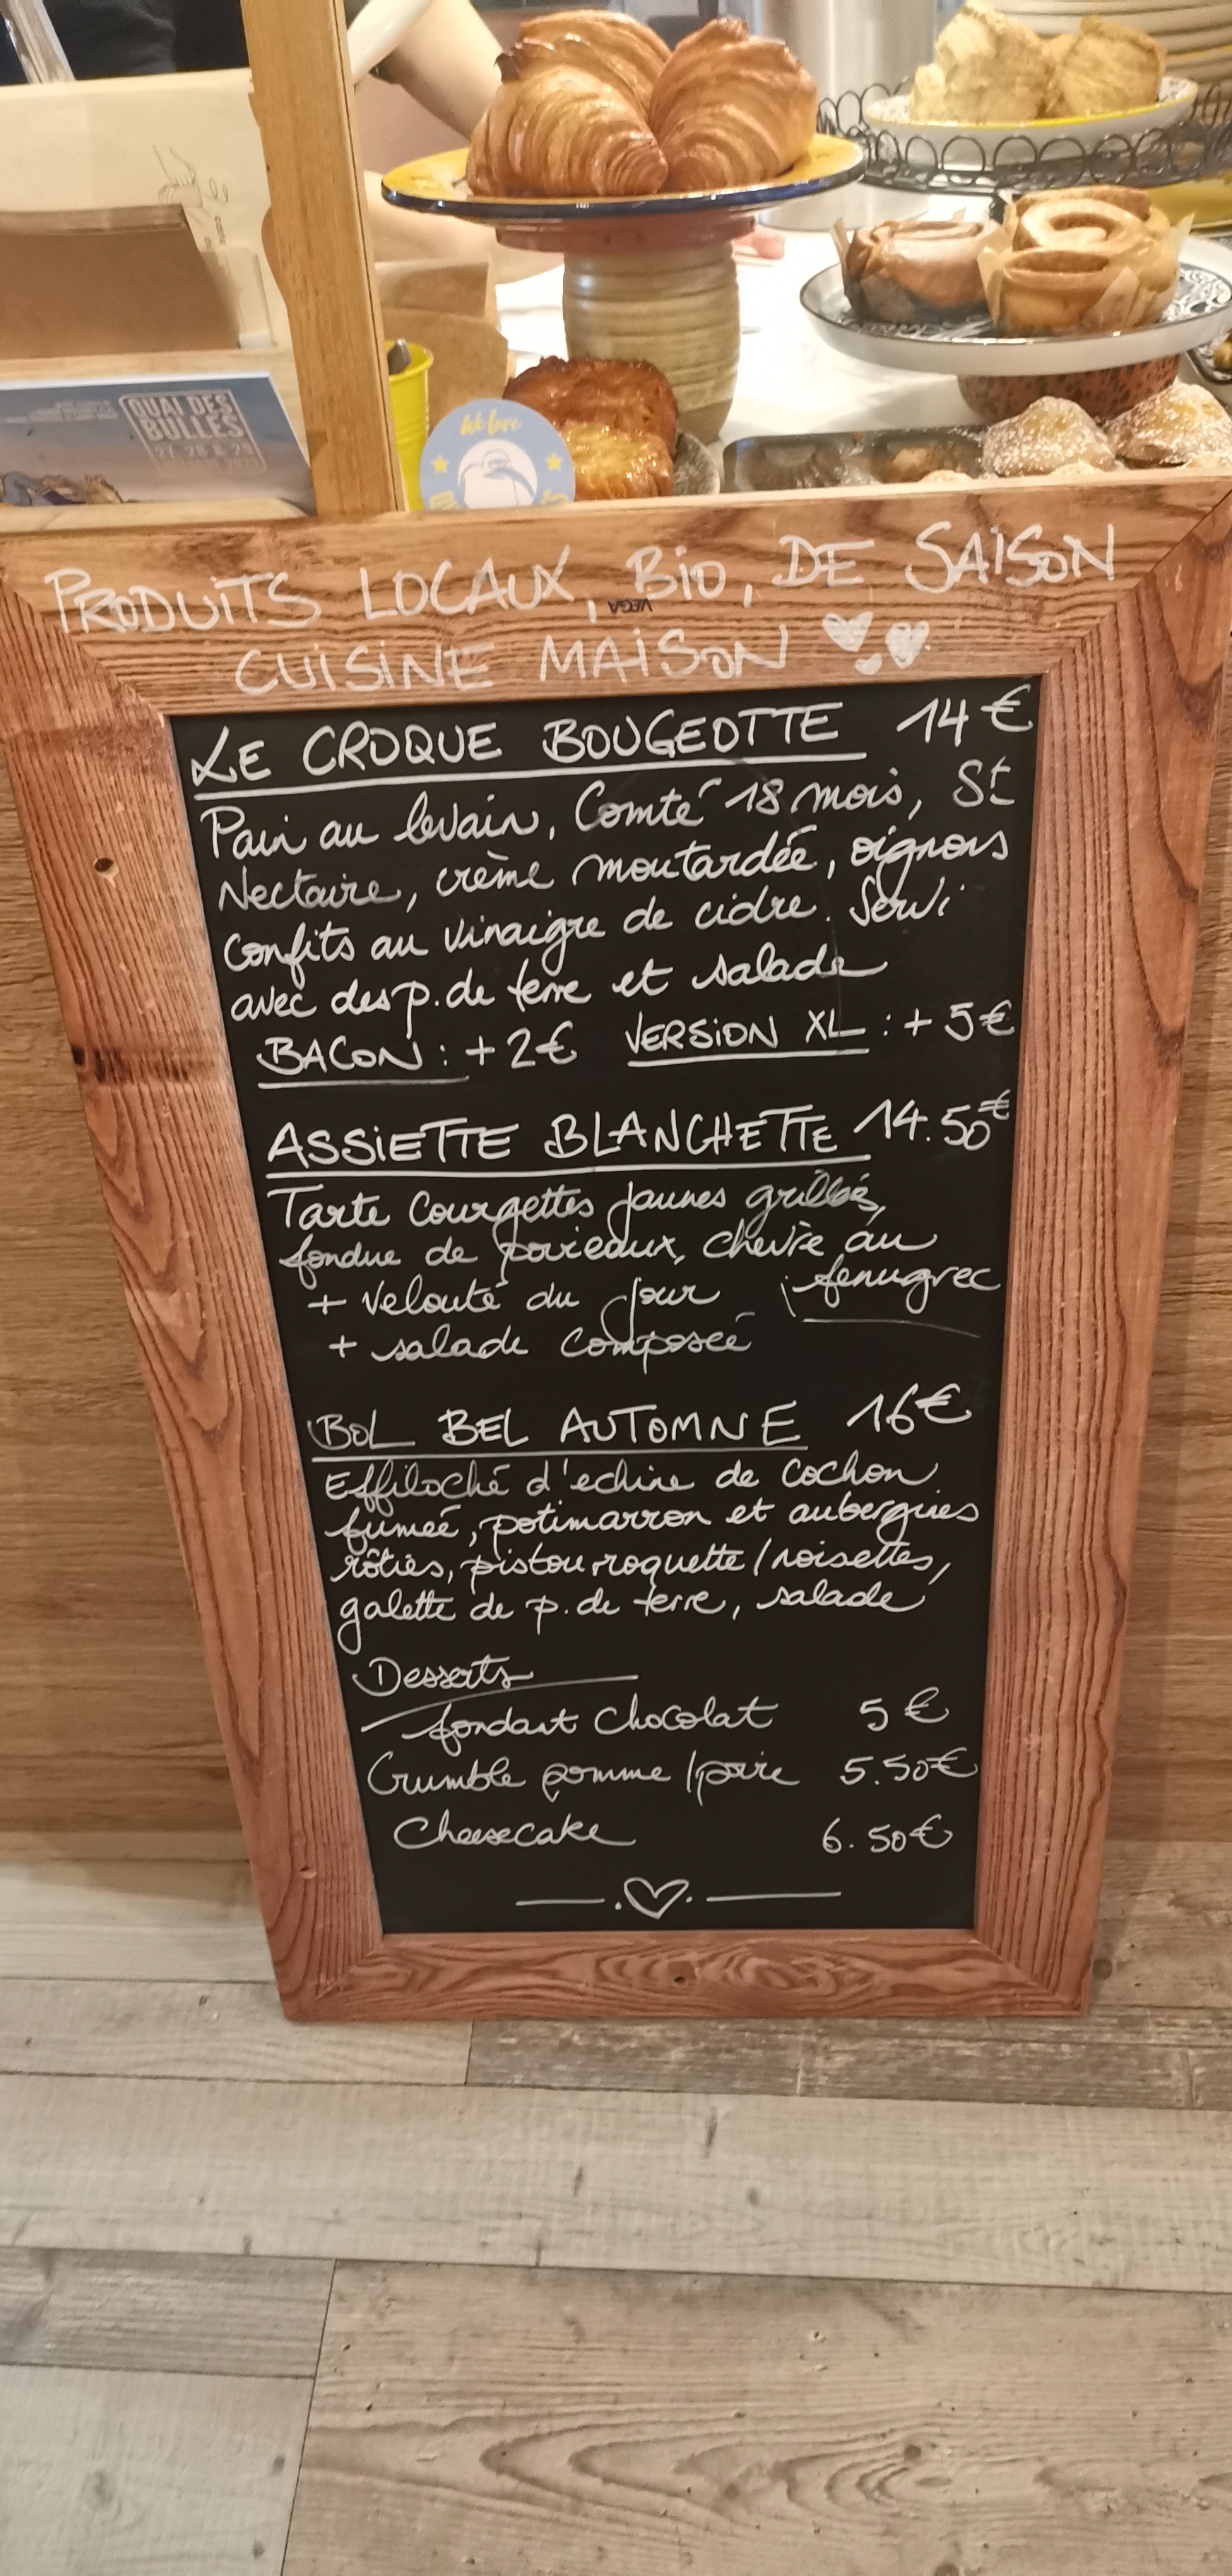 QUAI DES
BULLES
27, 28 & 29
We love
PRODUITS LOCAUX, BIO, DE SAISON
VEGA
CUISINE MAISON
LE CROQUE BOUGEOTTE 14€
Pain au levain, Comté 18 mois, St
Nectaire, crème moutardée, oignons
confits au vinaigre de cidre. Servi
avec des p. de terre et salade
BACON : +2€ VERSION XL : +5€
ASSIETTE BLANCHETTE 14.50€
Tarte Courgettes jaunes grillées,
fondue de poireaux, chèvre au
fenugrec
+ velouté du jour
+ salade composée
BOL BEL AUTOMNE 16€
Effiloché d'echine de cochon
fumée, potimarron et aubergines
rôties, pistou roquette / noisettes,
galette de p. de terre, salade
Desserts
fondant chocolat 5 €
Crumble pomme / poire 5.50€
Cheesecake 6.50€